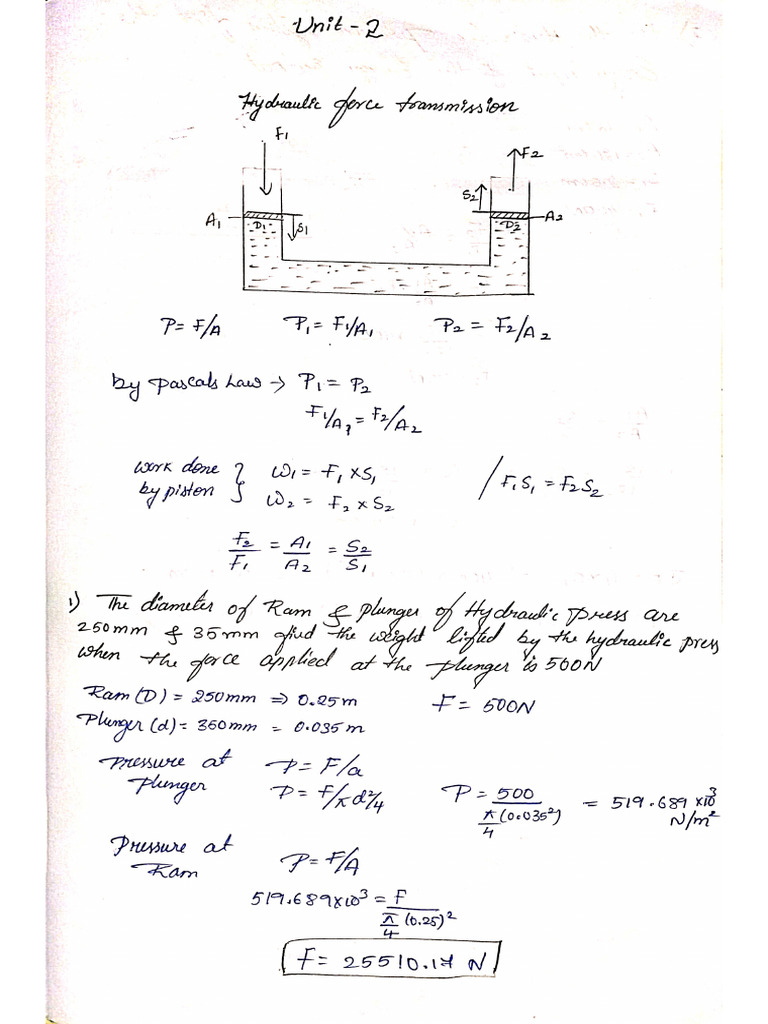 Unit-2
Hydraulic force transmission
F1
F2
S2
A1
D1
S1
D2
A2
P= F/A P1= F1/A1 P2= F2/A2
by Pascals Law → P1 = P2
F1/A1 = F2/A2
work done by piston } W1 = F1 × S1
W2 = F2 × S2
/ F1S1 = F2S2
F2/F1 = A1/A2 = S2/S1
1) The diameter of Ram & plunger of Hydraulic press are
250mm & 35mm find the weight lifted by the hydraulic press
when the force applied at the plunger is 500N
Ram(D) = 250mm ⇒ 0.25m F= 500N
Plunger(d)= 350mm = 0.035m
Pressure at Plunger P= F/a
P= F/π d²/4
P= 500 / π/4 (0.035²) = 519.689 ×10³ N/m²
Pressure at Ram P= F/A
519.689×10³ = F / π/4 (0.25)²
F= 25510.17 N